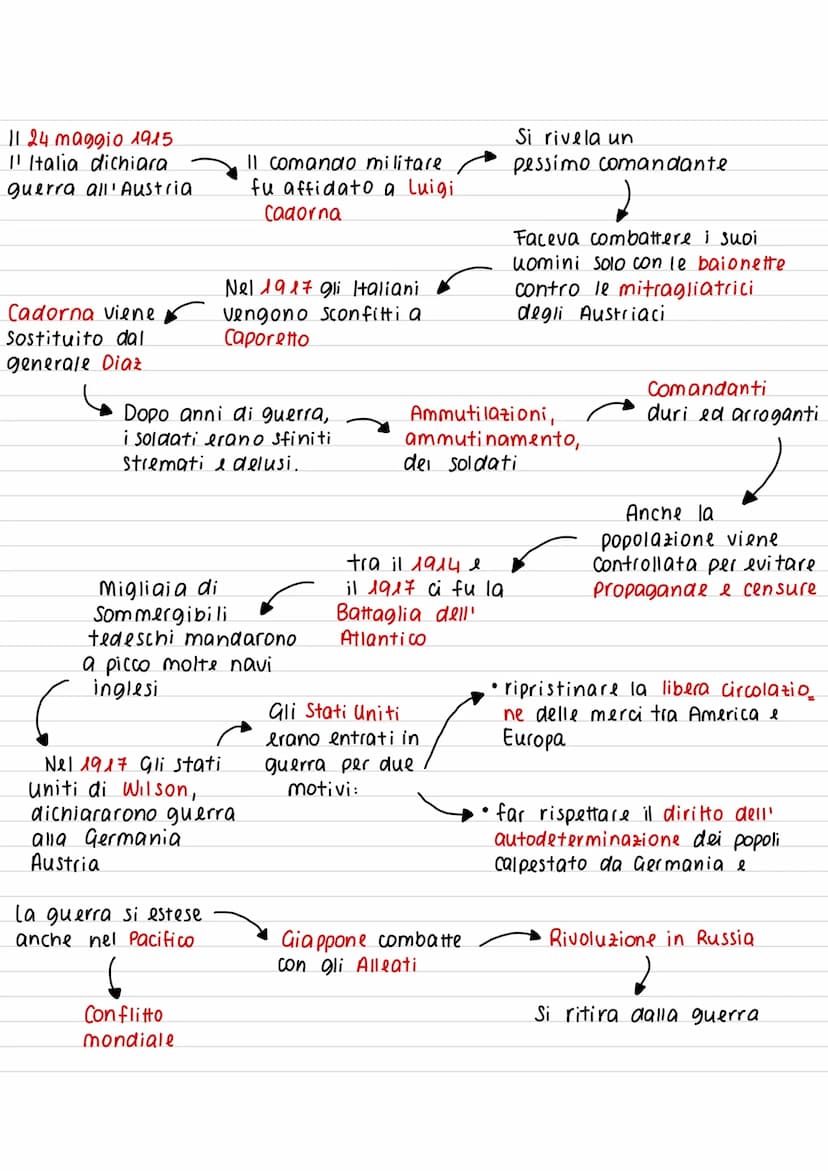 Il 24 maggio 1915
l'Italia dichiara
guerra all'Austria
Il comando militare
fu affidato a Luigi
Cadorna
Si rivela un
pessimo comandante
Faceva combattere i suoi
uomini solo con le baionette
contro le mitragliatrici
degli Austriaci
Nel 1917 gli Italiani
vengono sconfitti a
Caporetto
Cadorna viene
sostituito dal
generale Diaz
Dopo anni di guerra,
i soldati erano sfiniti
stremati e delusi.
Ammutilazioni,
ammutinamento,
dei soldati
Comandanti
duri ed arroganti
Anche la
popolazione viene
controllata per evitare
propagande e censure
tra il 1914 e
il 1917 ci fu la
Battaglia dell'
Atlantico
Migliaia di
sommergibili
tedeschi mandarono
a picco molte navi
inglesi
Nel 1917 Gli stati
uniti di Wilson,
dichiararono guerra
alla Germania
Austria
Gli Stati Uniti
erano entrati in
guerra per due
motivi:
• ripristinare la libera circolazio_
ne delle merci tra America e
Europa
• far rispettare il diritto dell'
autodeterminazione dei popoli
calpestato da Germania e
La guerra si estese
anche nel Pacifico
Conflitto
mondiale
Giappone combatte
con gli Alleati
Rivoluzione in Russia
Si ritira dalla guerra